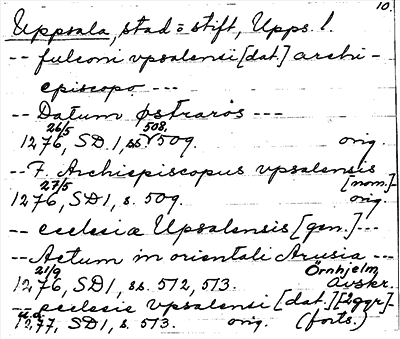 10.
Uppsala, stad o stift, Upps. l.
-- fulconi vpsalensi [dat.] archi-
episcopo ---
-- Datum østraros ---
26/5 508,
1276, SD 1, ss. 509. orig.
-- F. Archiepiscopus vpsalensis
27/5 [nom.]-
1276, SD1, s. 509. orig.
-- ecclesiæ Upsalensis [gen.] ---
-- Actum in orientali Arusia ---
21/9 Örnhjelm
1276, SD1, ss. 512, 513. avskr.
-- ecclesie vpsalensi [dat.] [2ggr]-
u.d.
1277, SD1, s. 513. orig. (forts.)